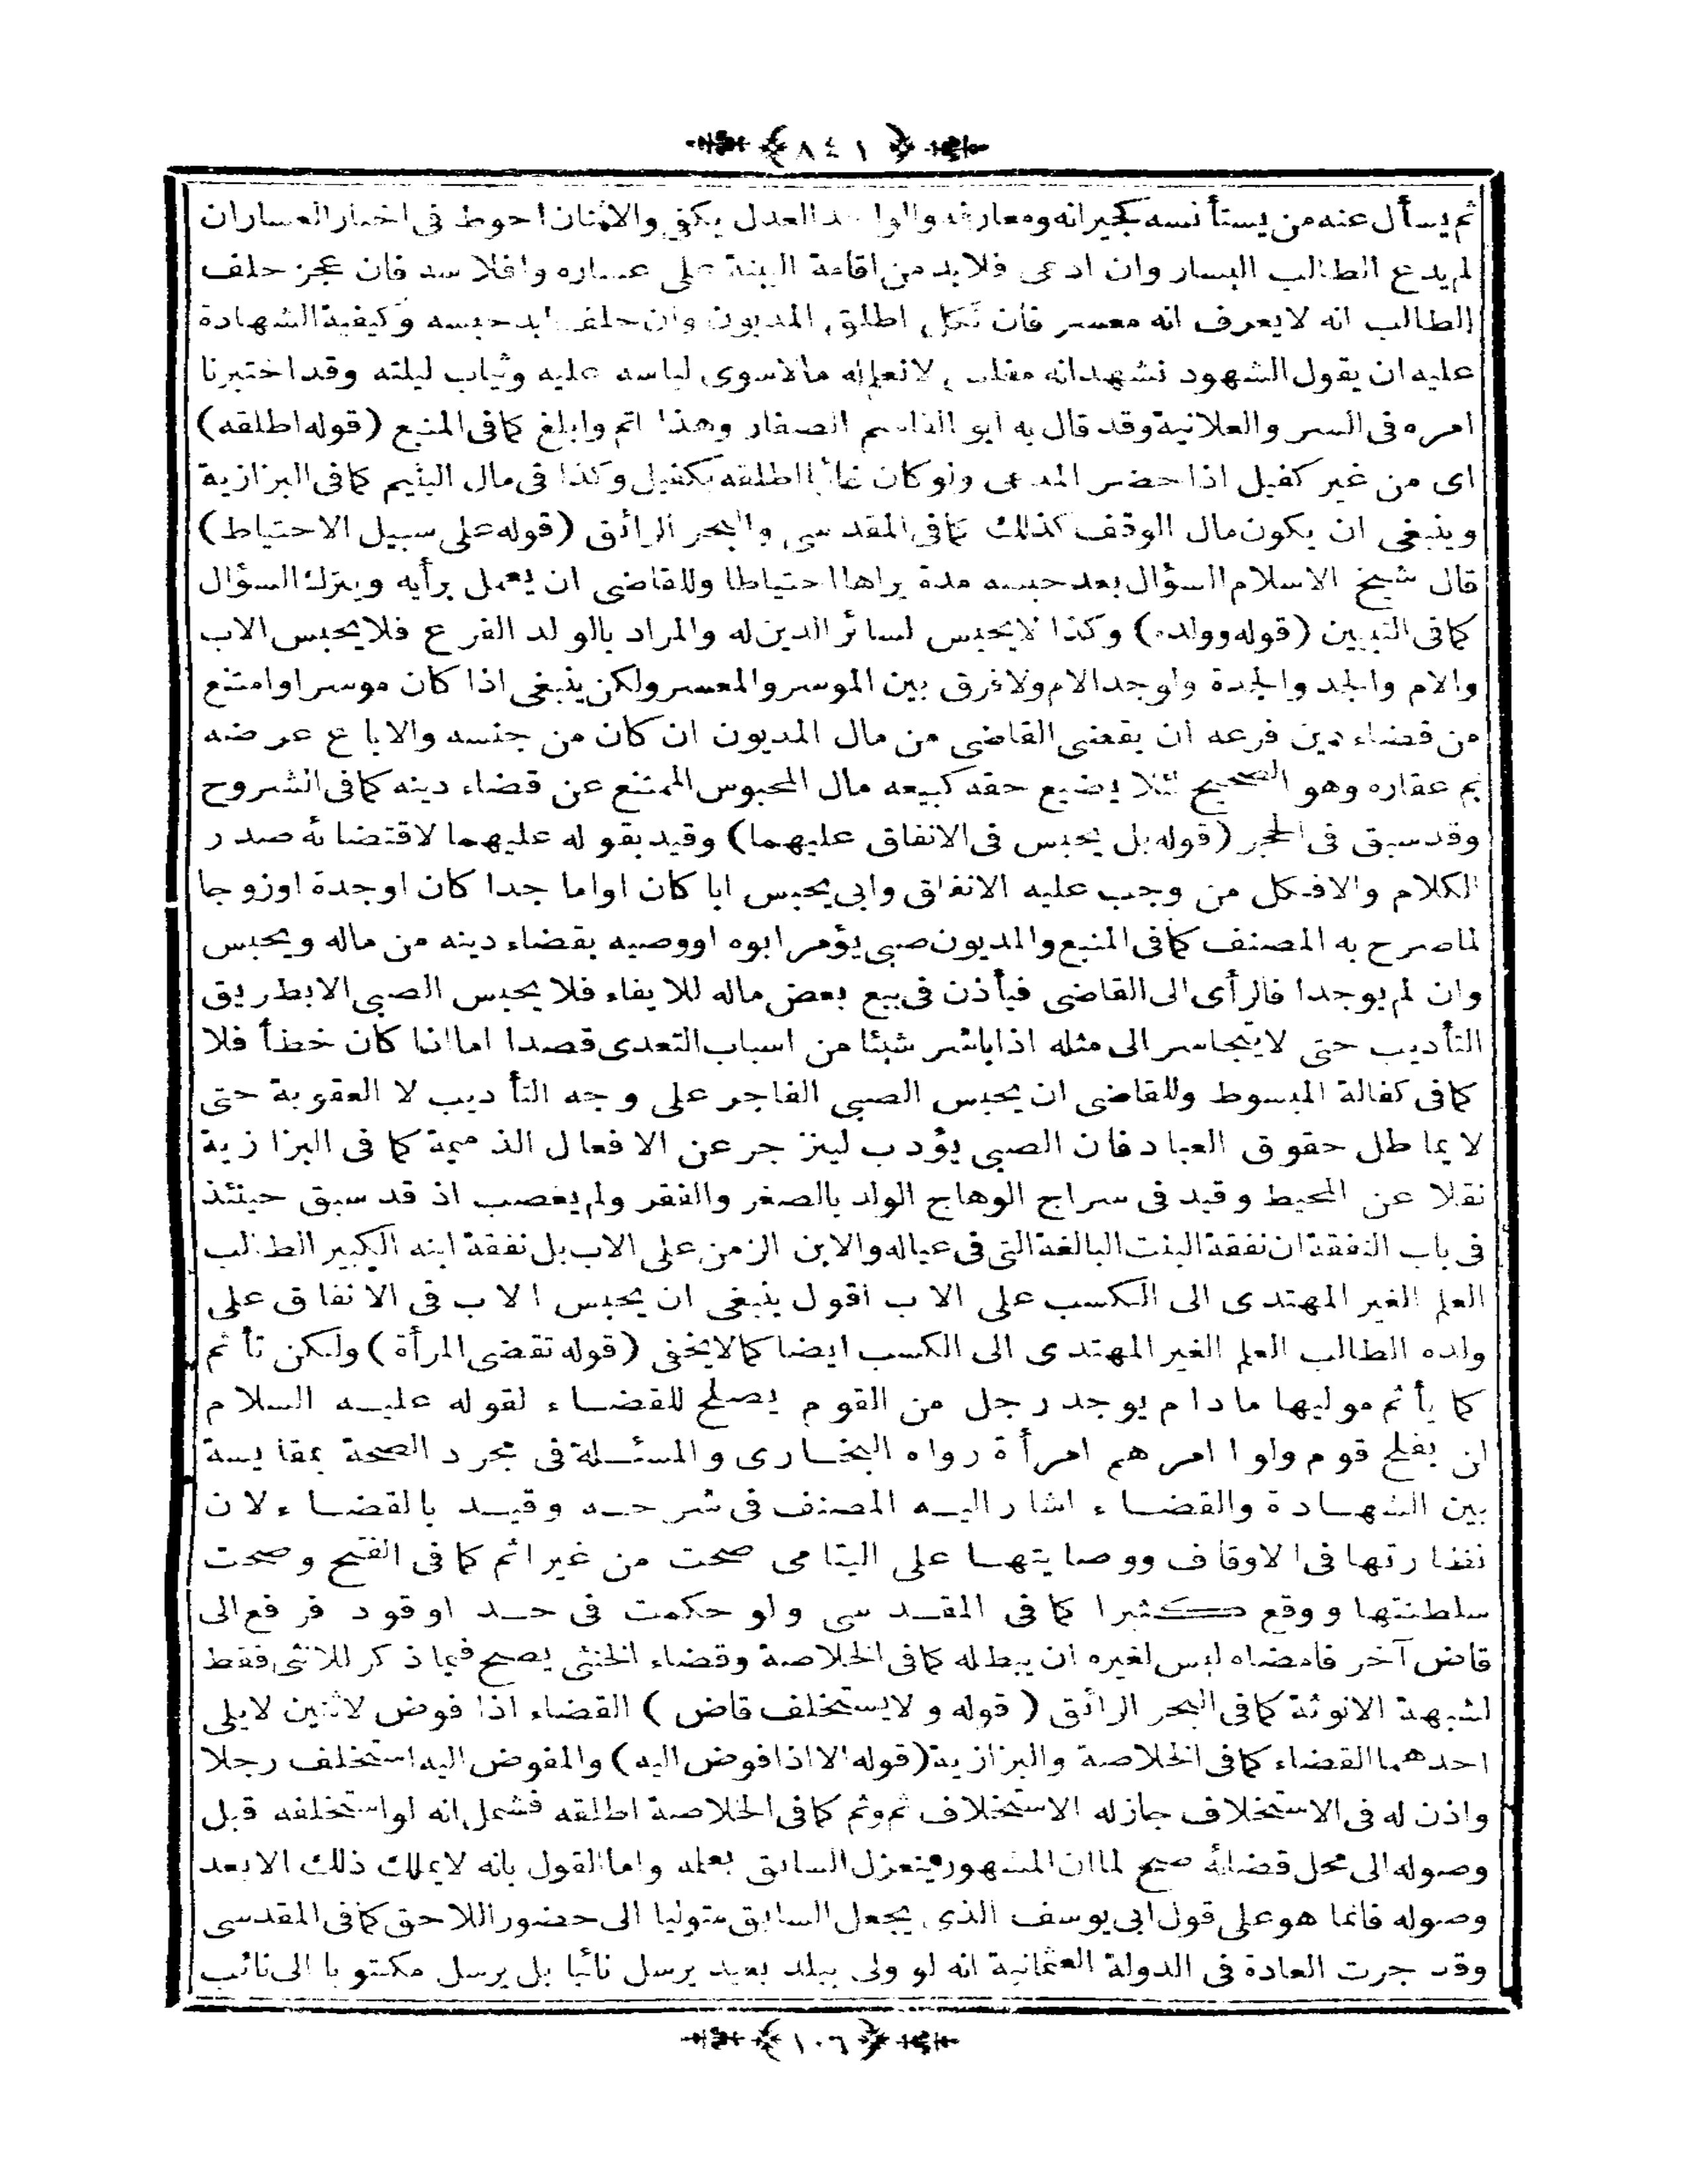 ﴿ ٨٤١ ﴾
ثم يسأل عنه من يستأنسه كجيرانه ومعارفه والواحد العدل يكفى والاثنان احوط فى اخبار العساران
لم يدع الطالب اليسار وان ادعى فلابد من اقامة البينة على عساره وافلاسه فان عجز حلف
الطالب انه لايعرف انه معسر فان نكل اطلق المديون وان حلف ابد حبسه وكيفية الشهادة
عليه ان يقول الشهود نشهد انه مفلس لانعلم له مالا سوى لباسه عليه وثياب ليلته وقد اختبرنا
امره فى السر والعلانية وقد قال به ابو القاسم الصفار وهذا اتم وابلغ كمافى المنبع (قوله اطلقه)
اى من غير كفيل اذا حضر المدعى ولو كان غائبا اطلقه بكفيل وكذا فى مال اليتيم كمافى البزازية
وينبغى ان يكون مال الوقف كذلك كمافى المقدسى والبحر الرائق (قوله على سبيل الاحتياط)
قال شيخ الاسلام السؤال بعد حبسه مدة يراها احتياطا وللقاضى ان يعمل برأيه ويترك السؤال
كمافى التبيين (قوله وولده) وكذا لايحبس لسائر الدين له والمراد بالولد الفرع فلايحبس الاب
والام والجد والجدة ولوجد الام ولافرق بين الموسر والمعسر ولكن ينبغى اذا كان موسرا وامتنع
من قضاء دين فرعه ان يقضى القاضى من مال المديون ان كان من جنسه والا باع عرضه
ثم عقاره وهو الصحيح لئلا يضيع حقه كبيعه مال المحبوس الممتنع عن قضاء دينه كمافى الشروح
وقد سبق فى الحجر (قوله بل يحبس فى الانفاق عليهما) وقيد بقوله عليهما لاقتضائه صدر
الكلام والافكل من وجب عليه الانفاق وابى يحبس ابا كان اواما جدا كان اوجدة اوزوجا
لماصرح به المصنف كمافى المنبع والمديون صبى يؤمر ابوه اووصيه بقضاء دينه من ماله ويحبس
وان لم يوجدا فالرأى الى القاضى فيأذن فى بيع بعض ماله للايفاء فلا يحبس الصبى الابطريق
التأديب حتى لايتجاسر الى مثله اذاباشر شيئا من اسباب التعدى قصدا اما اذا كان خطأ فلا
كمافى كفالة المبسوط وللقاضى ان يحبس الصبى الفاجر على وجه التأديب لا العقوبة حتى
لا يماطل حقوق العباد فان الصبى يؤدب لينزجر عن الافعال الذميمة كمافى البزازية
نقلا عن المحيط وقيد فى سراج الوهاج الولد بالصغر والفقر ولم يغصب اذ قد سبق حينئذ
فى باب النفقة ان نفقة البنت البالغة التى فى عياله والابن الزمن على الاب بل نفقة ابنه الكبير الطالب
العلم الغير المهتدى الى الكسب على الاب اقول ينبغى ان يحبس الاب فى الانفاق على
ولده الطالب العلم الغير المهتدى الى الكسب ايضا كمالايخفى (قوله تقضى المرأة) ولكن تأثم
كما يأثم موليها مادام يوجد رجل من القوم يصلح للقضاء لقوله عليه السلام
لن يفلح قوم ولوا امرهم امرأة رواه البخارى والمسئلة فى مجرد الصحة بمقايسة
بين الشهادة والقضاء اشار اليه المصنف فى شرحه وقيد بالقضاء لان
نظارتها فى الاوقاف ووصايتها على اليتامى صحت من غير اثم كمافى الفتح وصحت
سلطنتها ووقع كثيرا كمافى المقدسى ولو حكمت فى حد اوقود فرفع الى
قاض آخر فامضاه ليس لغيره ان يبطله كمافى الخلاصة وقضاء الخنثى يصح فيما ذكر للانثى فقط
لشبهة الانوثة كمافى البحر الرائق (قوله ولايستخلف قاض) القضاء اذا فوض لاثنين لايلى
احدهما القضاء كمافى الخلاصة والبزازية (قوله الااذافوض اليه) والمفوض اليه استخلف رجلا
واذن له فى الاستخلاف جاز له الاستخلاف ثم وثم كمافى الخلاصة اطلقه فشمل انه لواستخلفه قبل
وصوله الى محل قضائه صح لماان المشهور ينعزل السابق بعلمه واماالقول بانه لايملك ذلك الابعد
وصوله فانما هو على قول ابى يوسف الذى يجعل السابق متوليا الى حضور اللاحق كمافى المقدسى
وقد جرت العادة فى الدولة العثمانية انه لو ولى ببلد بعيد يرسل نائبا بل يرسل مكتوبا الى نائب
﴿ ١٠٦ ﴾